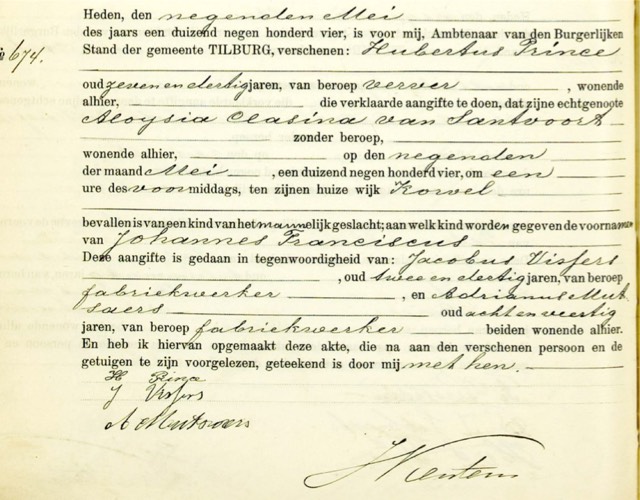 Heden, den negenden Mei
des jaars een duizend negen honderd vier, is voor mij, Ambtenaar van den Burgerlijken
Stand der gemeente TILBURG, verschenen: Hubertus Prince
№ 674.
oud zeven en dertig jaren, van beroep verver, wonende
alhier, die verklaarde aangifte te doen, dat zijne echtgenoote
Aloysia Clasina van Santvoort
zonder beroep,
wonende alhier, op den negenden
der maand Mei, een duizend negen honderd vier, om een
ure des voormiddags, ten zijnen huize wijk Korvel
bevallen is van een kind van het mannelijk geslacht; aan welk kind worden gegeven de voornamen
van Johannes Franciscus
Deze aangifte is gedaan in tegenwoordigheid van: Jacobus Vissers
, oud twee en dertig jaren, van beroep
fabriekwerker, en Adrianus Mut
saers oud acht en veertig
jaren, van beroep fabriekwerker beiden wonende alhier.
En heb ik hiervan opgemaakt deze akte, die na aan den verschenen persoon en de
getuigen te zijn voorgelezen, geteekend is door mij met hen.
H Prince
J Vissers
A Mutsaers